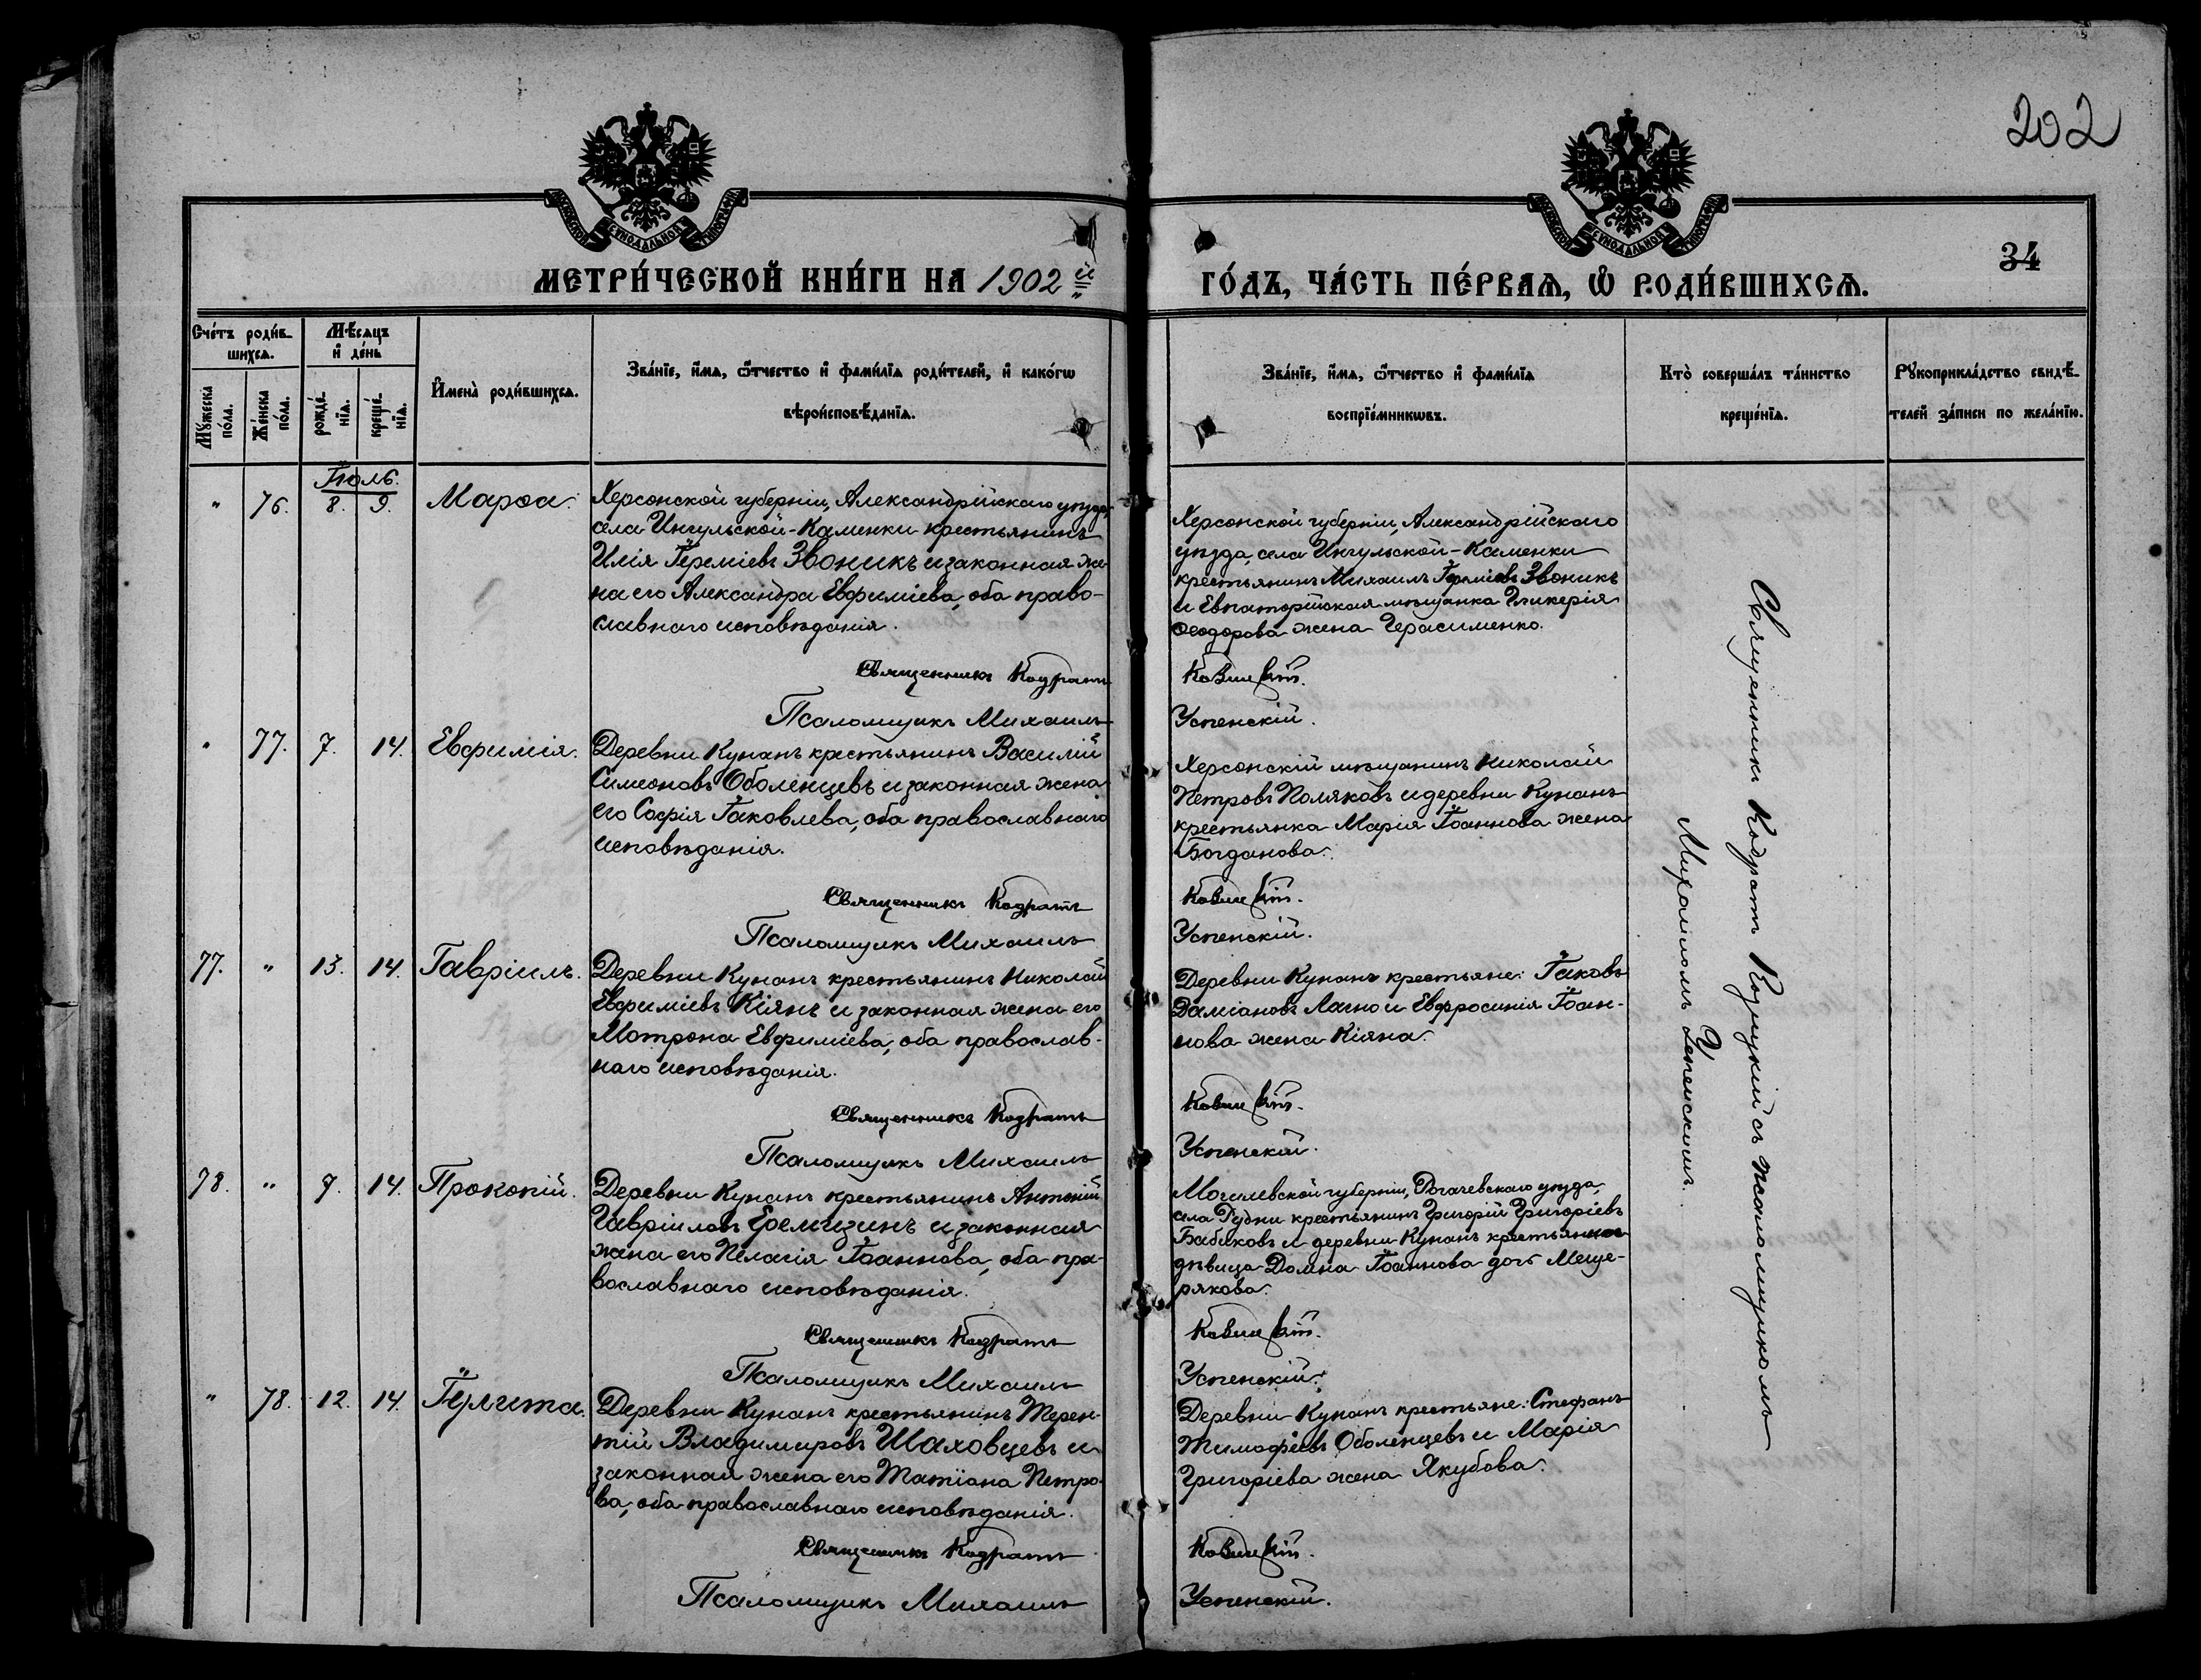 202
МОСКОВСКОЙ СѴНОДАЛЬНОЙ ТИПОГРАФІИ
МОСКОВСКОЙ СѴНОДАЛЬНОЙ ТИПОГРАФІИ
МЕТРИ́ЧЕСКОЙ КНИ́ГИ НА 1902 й
ГО́ДЪ, ЧА́СТЬ ПЕ́РВАѦ, Ѡ҆ РОДИ́ВШИХСѦ.
34
Сче́тъ роди́в-
шихсѧ.
Му́жеска по́ла.
Же́нска по́ла.
Мѣ́сѧцъ
и҆ де́нь
рожде́-
нїѧ.
креще́-
нїѧ.
И҆мена̀ роди́вшихсѧ.
Зва́нїе, и҆́мѧ, ѻ҆́тчество и҆ фами́лїѧ роди́телей, и҆ како́гѡ
вѣроисповѣ́данїѧ.
Зва́нїе, и҆́мѧ, ѻ҆́тчество и҆ фами́лїѧ
воспрїе́мникѡвъ.
Кто̀ соверша́лъ та́инство
креще́нїѧ.
Рꙋкоприкла́дство свидѣ́-
телей за́писи по жела́нїю.
Іюль.
" 76. 8. 9. Марѳа.
Херсонской губерніи, Александрійскаго уѣзда,
села Ингульской-Каменки крестьянинъ
Илія Іереміевъ Звоникъ и законная же-
на его Александра Евфиміева, оба право-
славнаго исповѣданія.
Священникъ Кодратъ
Псаломщикъ Михаилъ
Херсонской губерніи, Александрійскаго
уѣзда, села Ингульской-Каменки
крестьянинъ Михаилъ Іереміевъ Звоникъ
и Евпаторійская мѣщанка Гликерія
Ѳеодорова жена Герасименко.
Успенскій.
" 77. 7. 14. Евфимія.
Деревни Кунанъ крестьянинъ Василій
Симеоновъ Оболенцевъ и законная жена
его Софія Іаковлева, оба православнаго
исповѣданія.
Священникъ Кодратъ
Псаломщикъ Михаилъ
Херсонскій мѣщанинъ Николай
Петровъ Поляковъ и деревни Кунанъ
крестьянка Марія Іоаннова жена
Богданова.
Успенскій.
77. " 13. 14. Гавріилъ.
Деревни Кунанъ крестьянинъ Николай
Евфиміевъ Кіянъ и законная жена его
Мотрона Евфиміева, оба православ-
наго исповѣданія.
Священникъ Кодратъ
Псаломщикъ Михаилъ
Деревни Кунанъ крестьяне: Іаковъ
Даміановъ Лагно и Евфросинія Іоан-
нова жена Кіяна.
Успенскій.
78. " 7. 14. Прокопій.
Деревни Кунанъ крестьянинъ Антоній
Гавріиловъ Еремизинъ и законная
жена его Пелагія Іоаннова, оба пра-
вославнаго исповѣданія.
Священникъ Кодратъ
Псаломщикъ Михаилъ
Могилевской губерніи, Рогачевскаго уѣзда,
села Рудни крестьянинъ Григорій Григоріевъ
Бабиковъ и деревни Кунанъ крестьянка
дѣвица Домна Іоаннова дочь Меще-
рякова.
Успенскій.
" 78. 12. 14. Іулита.
Деревни Кунанъ крестьянинъ Терен-
тій Владимировъ Шаховцевъ и
законная жена его Татіана Петро-
ва, оба православнаго исповѣданія.
Священникъ Кодратъ
Псаломщикъ Михаилъ
Деревни Кунанъ крестьяне: Стефанъ
Тимофеевъ Оболенцевъ и Марія
Григоріева жена Якубова.
Успенскій.
Священникъ Кодратъ съ псаломщикомъ
Михаиломъ Успенскимъ.